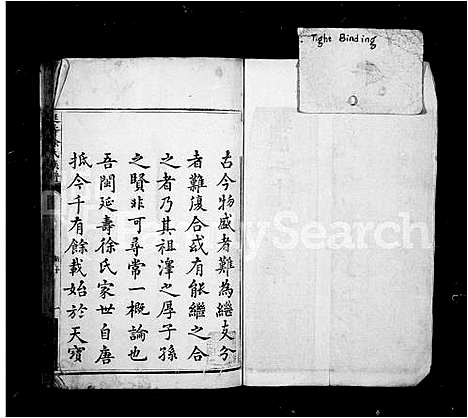 Tight Binding
古今物盛者難為繼支分
者難復合或有能繼之合
之者乃其祖澤之厚子孫
之賢非可尋常一概論也
吾閩延壽徐氏家世自唐
抵今千有餘載始於天寶